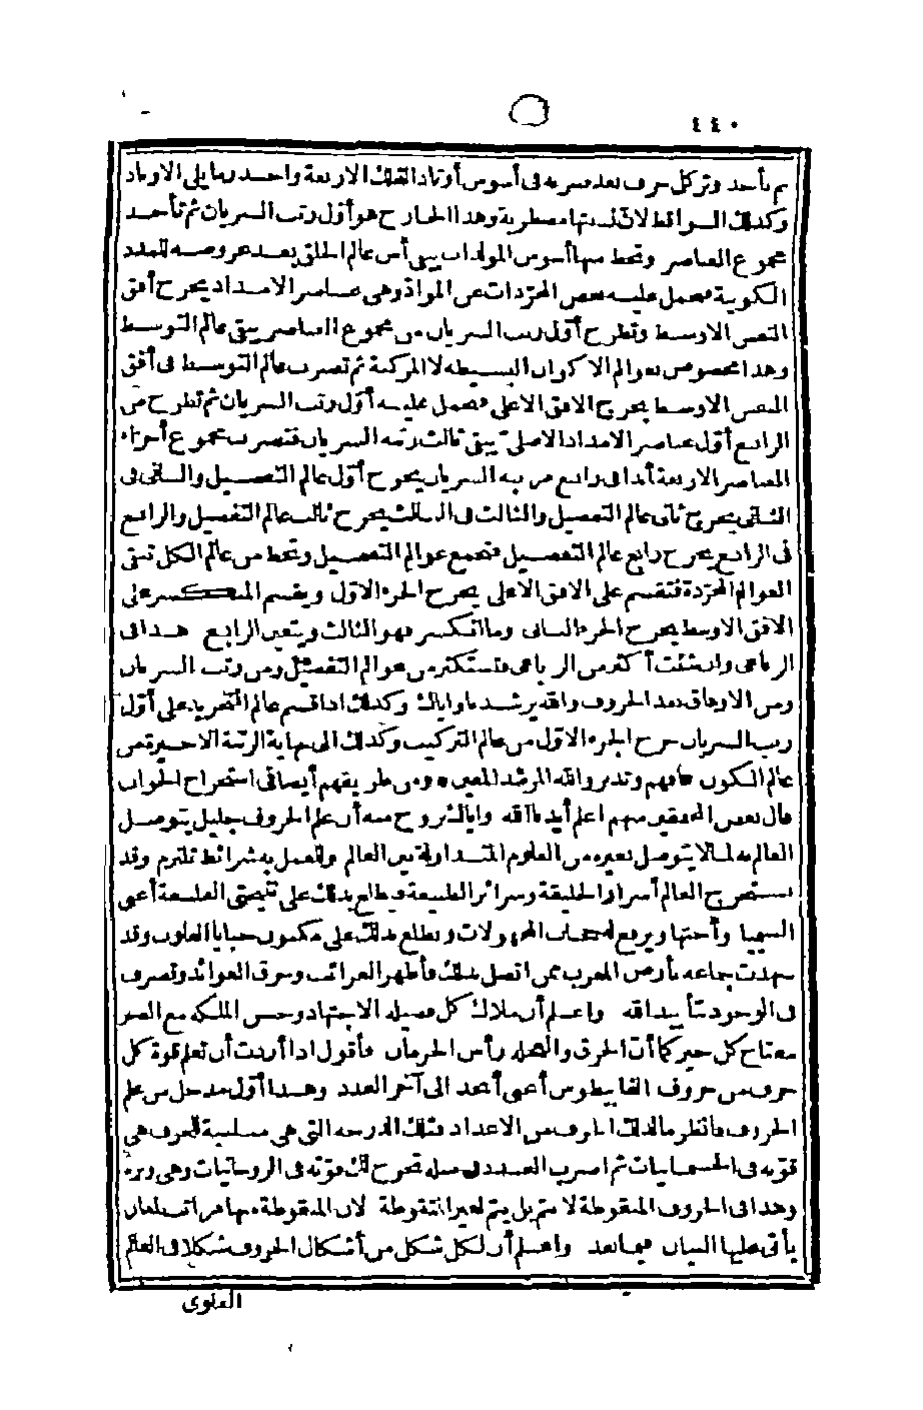 ٤٤٠
ثم تأخذ وتر كل حرف بعد ضربه في أسوس أوتاد الفلك الاربعة واحذر ما يلي الاوتاد
وكذلك السواقط لان نسبتها مضطربة وهذا الخارج هو أول رتب السريان ثم تأخذ
مجموع العناصر وتحط منها أسوس المولدات يبقى أس عالم الخلق بعد عروضه للمدد
الكونية فتحمل عليه بعض المجردات عن المواد وهي عناصر الامداد يخرج أفق
النفس الاوسط وتطرح أول رتب السريان من مجموع العناصر يبقى عالم التوسط
وهذا مخصوص بعوالم الاكوان البسيطة لا المركبة ثم تضرب عالم التوسط في أفق
النفس الاوسط يخرج الافق الاعلى فتحمل عليه أول رتب السريان ثم تطرح من
الرابع أول عناصر الامداد الاصلي يبقى ثالث رتبة السريان فتضرب مجموع أجزاء
العناصر الاربعة أبدا في رابع مرتبة السريان يخرج أول عالم التفصيل والثاني في
الثاني يخرج ثاني عالم التفصيل والثالث في الثالث يخرج ثالث عالم التفصيل والرابع
في الرابع يخرج رابع عالم التفصيل فتجمع عوالم التفصيل وتحط من عالم الكل تبقى
العوالم المجردة فتقسم على الافق الاعلى يخرج الجزء الاول ويقسم المنكسر على
الافق الاوسط يخرج الجزء الثاني وما انكسر فهو الثالث ويتعين الرابع هذا في
الرباعي وان شئت أكثر من الرباعي فتستكثر من عوالم التفصيل ومن رتب السريان
ومن الاوفاق بعد الحروف والله يرشدنا واياك وكذلك اذا قسم عالم التجريد على أول
رتب السريان خرج الجزء الاول من عالم التركيب وكذلك الى نهاية الرتبة الاخيرة من
عالم الكون فافهم وتدبر والله المرشد المعين ومن طريقهم أيضا في استخراج الجواب
قال بعض المحققين منهم اعلم أيدنا الله واياك بروح منه أن علم الحروف جليل يتوصل
العالم به لما لا يتوصل بغيره من العلوم المتداولة بين العالم وللعمل به شرائط تلتزم وقد
يستخرج العالم أسرار الخليقة وسرائر الطبيعة فيطلع بذلك على نتيجتي الفلسفة أعني
السيميا وأختها ويرفع له حجاب المجهولات ويطلع بذلك على مكنون خبايا القلوب وقد
شهدت جماعة بأرض المغرب ممن اتصل بذلك فأظهر الغرائب وخرق العوائد وتصرف
في الوجود بتأييد الله واعلم أن ملاك كل فضيلة الاجتهاد وحسن الملكة مع الصبر
مفتاح كل خير كما أن الخرق والعجلة رأس الحرمان فأقول اذا أردت أن تعلم قوة كل
حرف من حروف الفابيطوس أعني أبجد الى آخر العدد وهذا أول مدخل من علم
الحروف فانظر ما لذلك الحرف من الاعداد فتلك الدرجة التي هي مناسبة للحرف هي
قوته في الجسمانيات ثم اضرب العدد في مثله تخرج لك قوته في الروحانيات وهي وتره
وهذا في الحروف المنقوطة لا يتم بل يتم لغير المنقوطة لان المنقوطة منها مراتب لمعان
يأتي عليها البيان فيما بعد واعلم أن لكل شكل من أشكال الحروف شكلا في العالم
العلوي